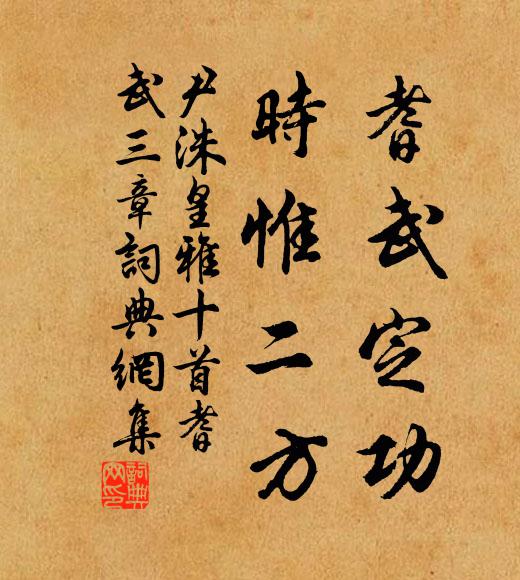 耆武定功
時惟二方
尹洙皇雅十首耆
武三章詞典網集
詞典
网印